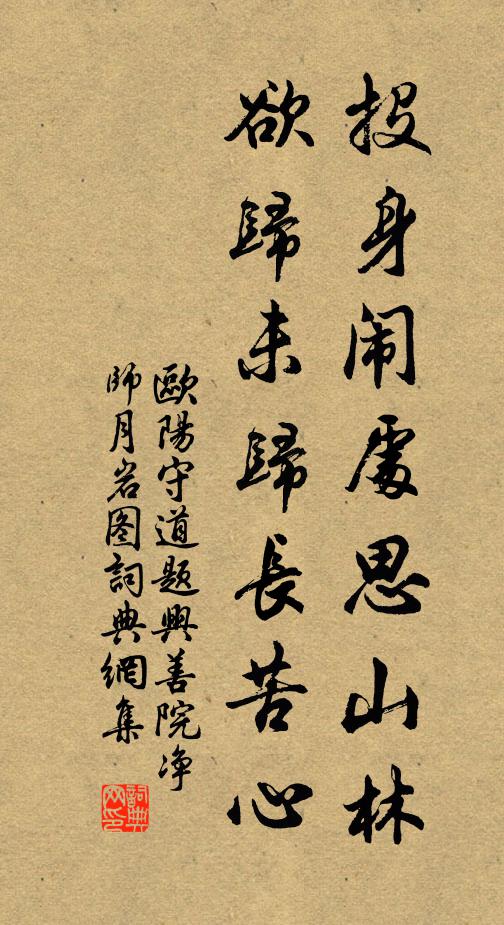 投身闹處思山林
欲歸未歸長苦心
歐陽守道題興善院净
師月岩图詞典網集
詞典
网印